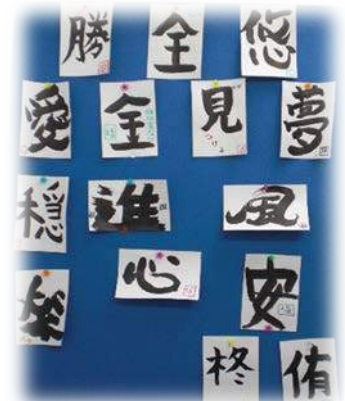 勝 全 悠
愛 全 見 夢
穏 進 風
心 安
楽
柊 侑